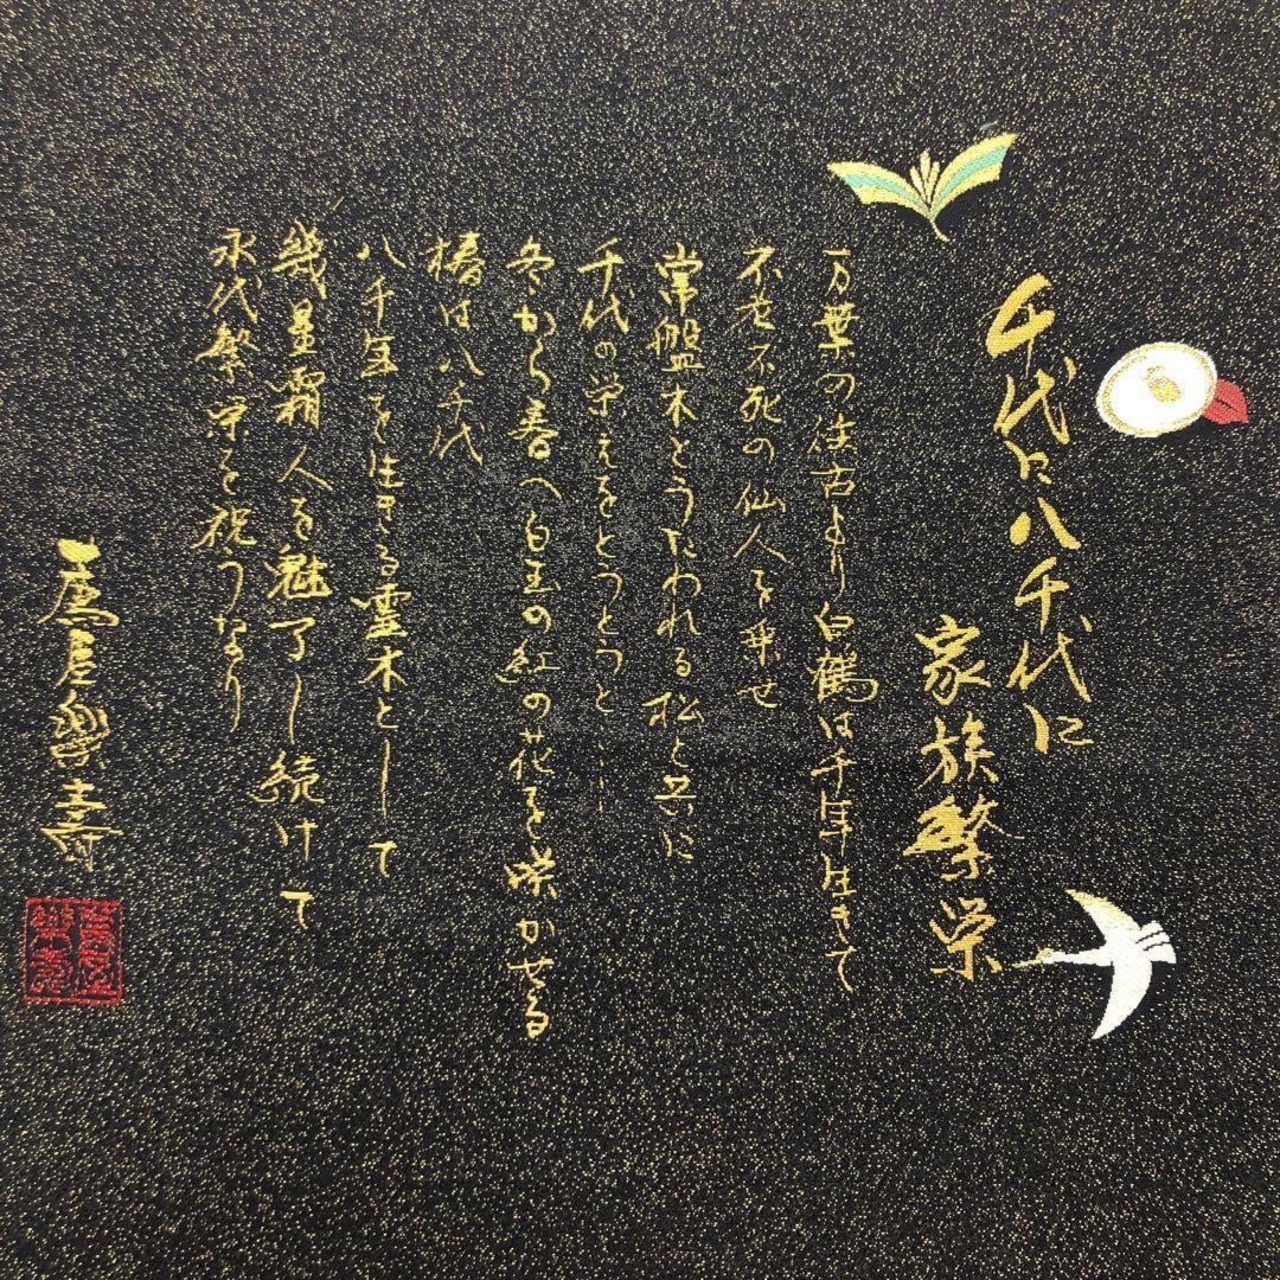 千代に八千代に
家族繁栄
万葉の往古より白鶴は千年生きて
不老不死の仙人を乗せ
常盤木とうたわれる松と共に
千代の栄えをとうとうと……
冬から春へ白玉の紅の花を咲かせる
椿は八千代
八千年を生きる霊木として
幾星霜人を魅了し続けて
永代繁栄を祝うなり